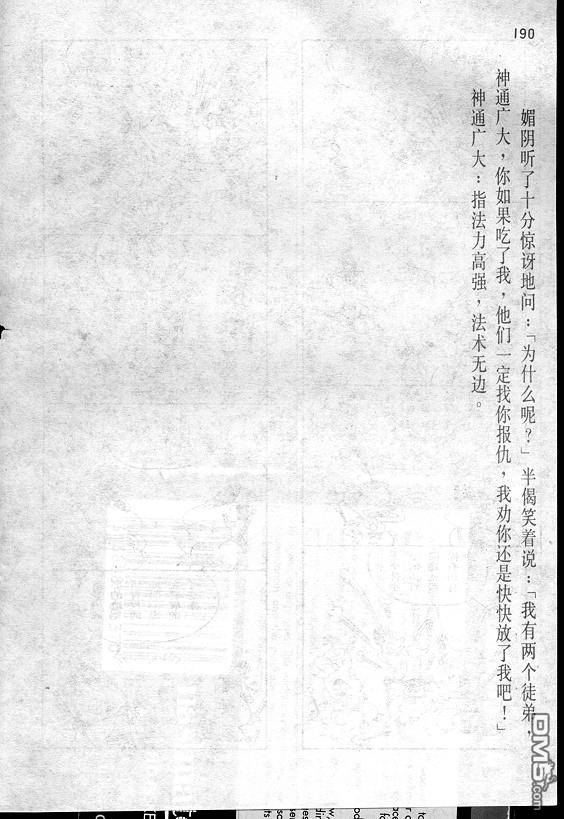 190
媚阴听了十分惊讶地问：「为什么呢？」半偈笑着说：「我有两个徒弟，
神通广大，你如果吃了我，他们一定找你报仇，我劝你还是快快放了我吧！」
神通广大：指法力高强，法术无边。
DM5.com